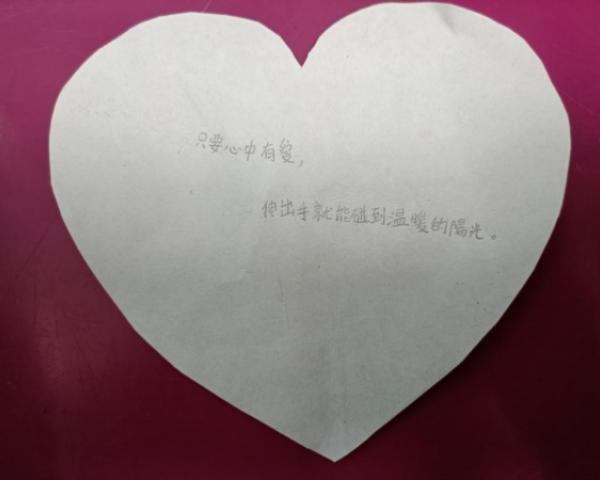 只要心中有愛，
伸出手就能碰到温暖的陽光。